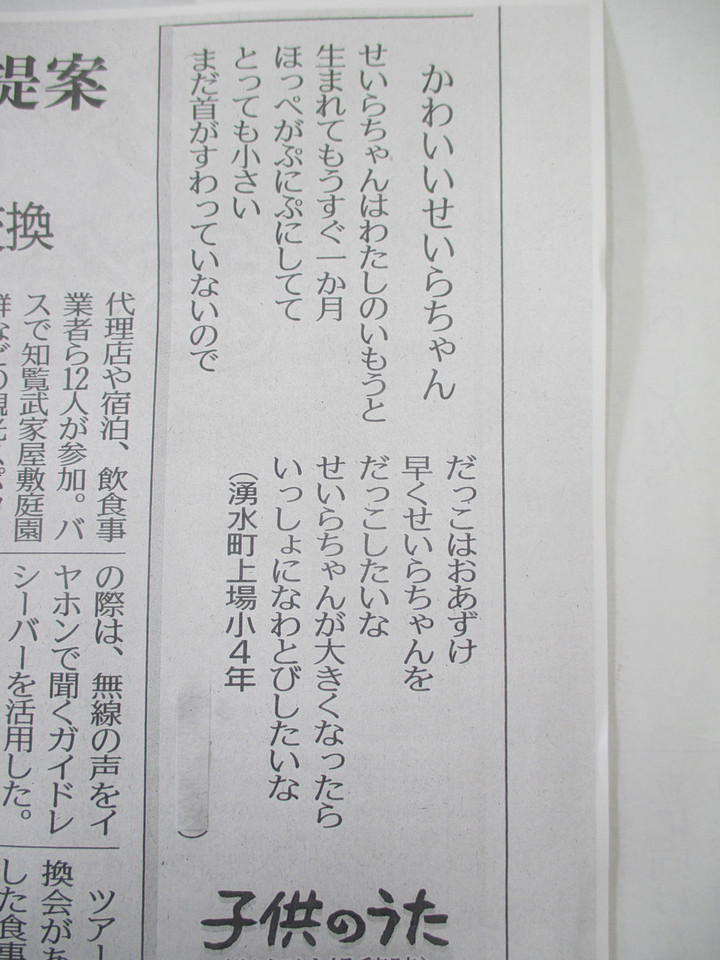 かわいいせいらちゃん
せいらちゃんはわたしのいもうと
生まれてもうすぐ一か月
ほっぺがぷにぷにしてて
とっても小さい
まだ首がすわっていないので
だっこはおあずけ
早くせいらちゃんを
だっこしたいな
せいらちゃんが大きくなったら
いっしょになわとびしたいな
（湧水町上場小４年
）
子供のうた
提案
換
代理店や宿泊、飲食事
業者ら12人が参加。バ
スで知覧武家屋敷庭園
の際は、無線の声をイ
ヤホンで聞くガイドレ
シーバーを活用した。
ツアー
換会が
した食事